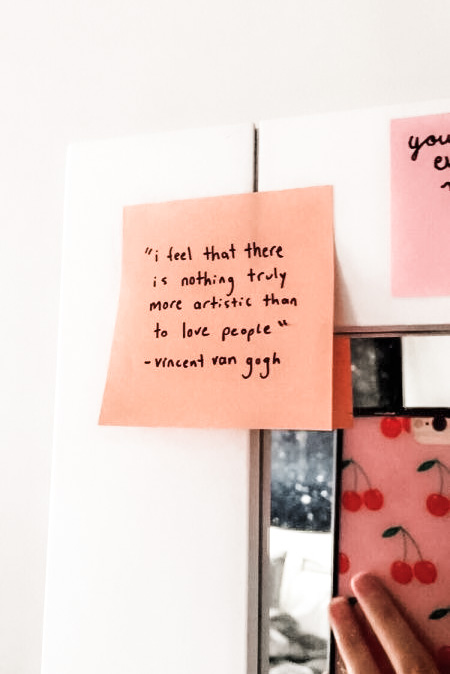 "i feel that there
is nothing truly
more artistic than
to love people"
-vincent van gogh
you